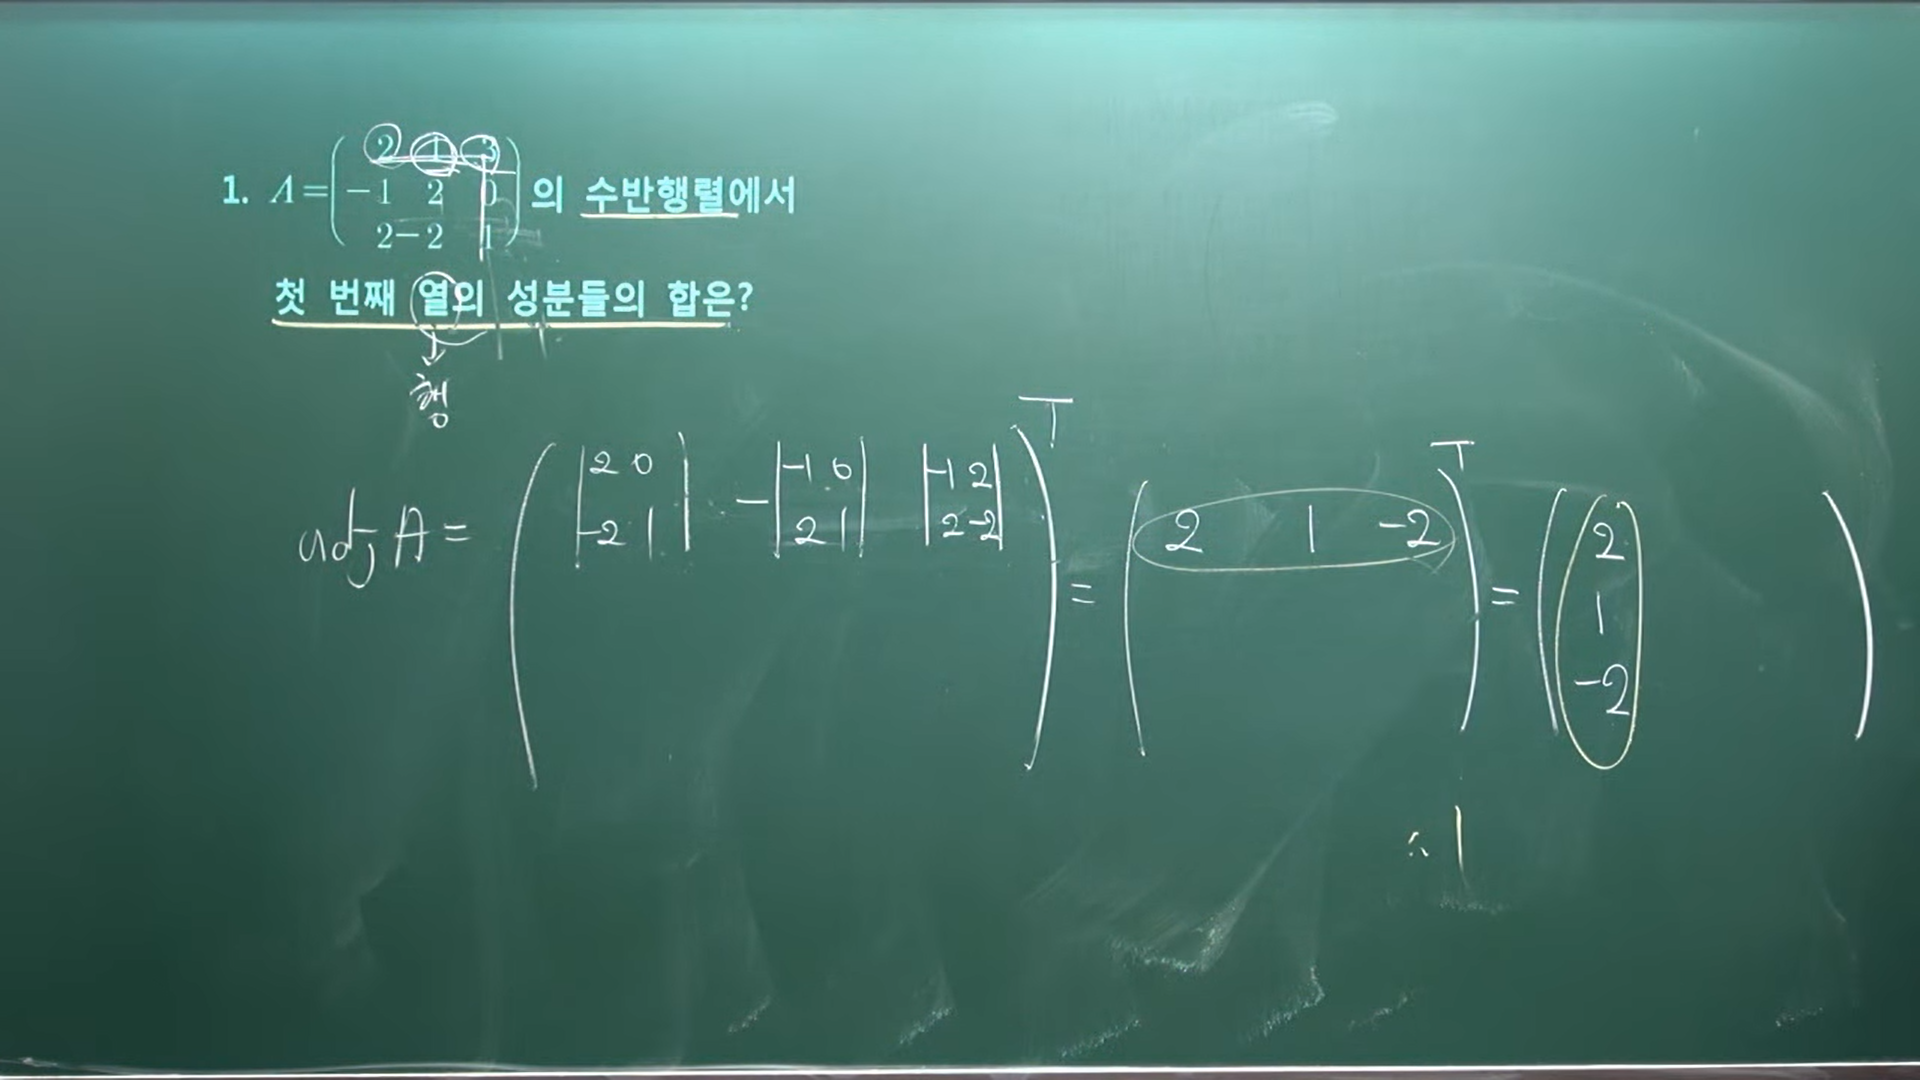 1. A = ( 2 1 3
-1 2 0 의 수반행렬에서
2 -2 1 )
첫 번째 열의 성분들의 합은?
행
adj A = ( |2 0 -2 1| -|-1 0 2 1| |-1 2 2 -2| )^T = ( 2 1 -2 )^T = ( 2 1 -2 )
∴ 1